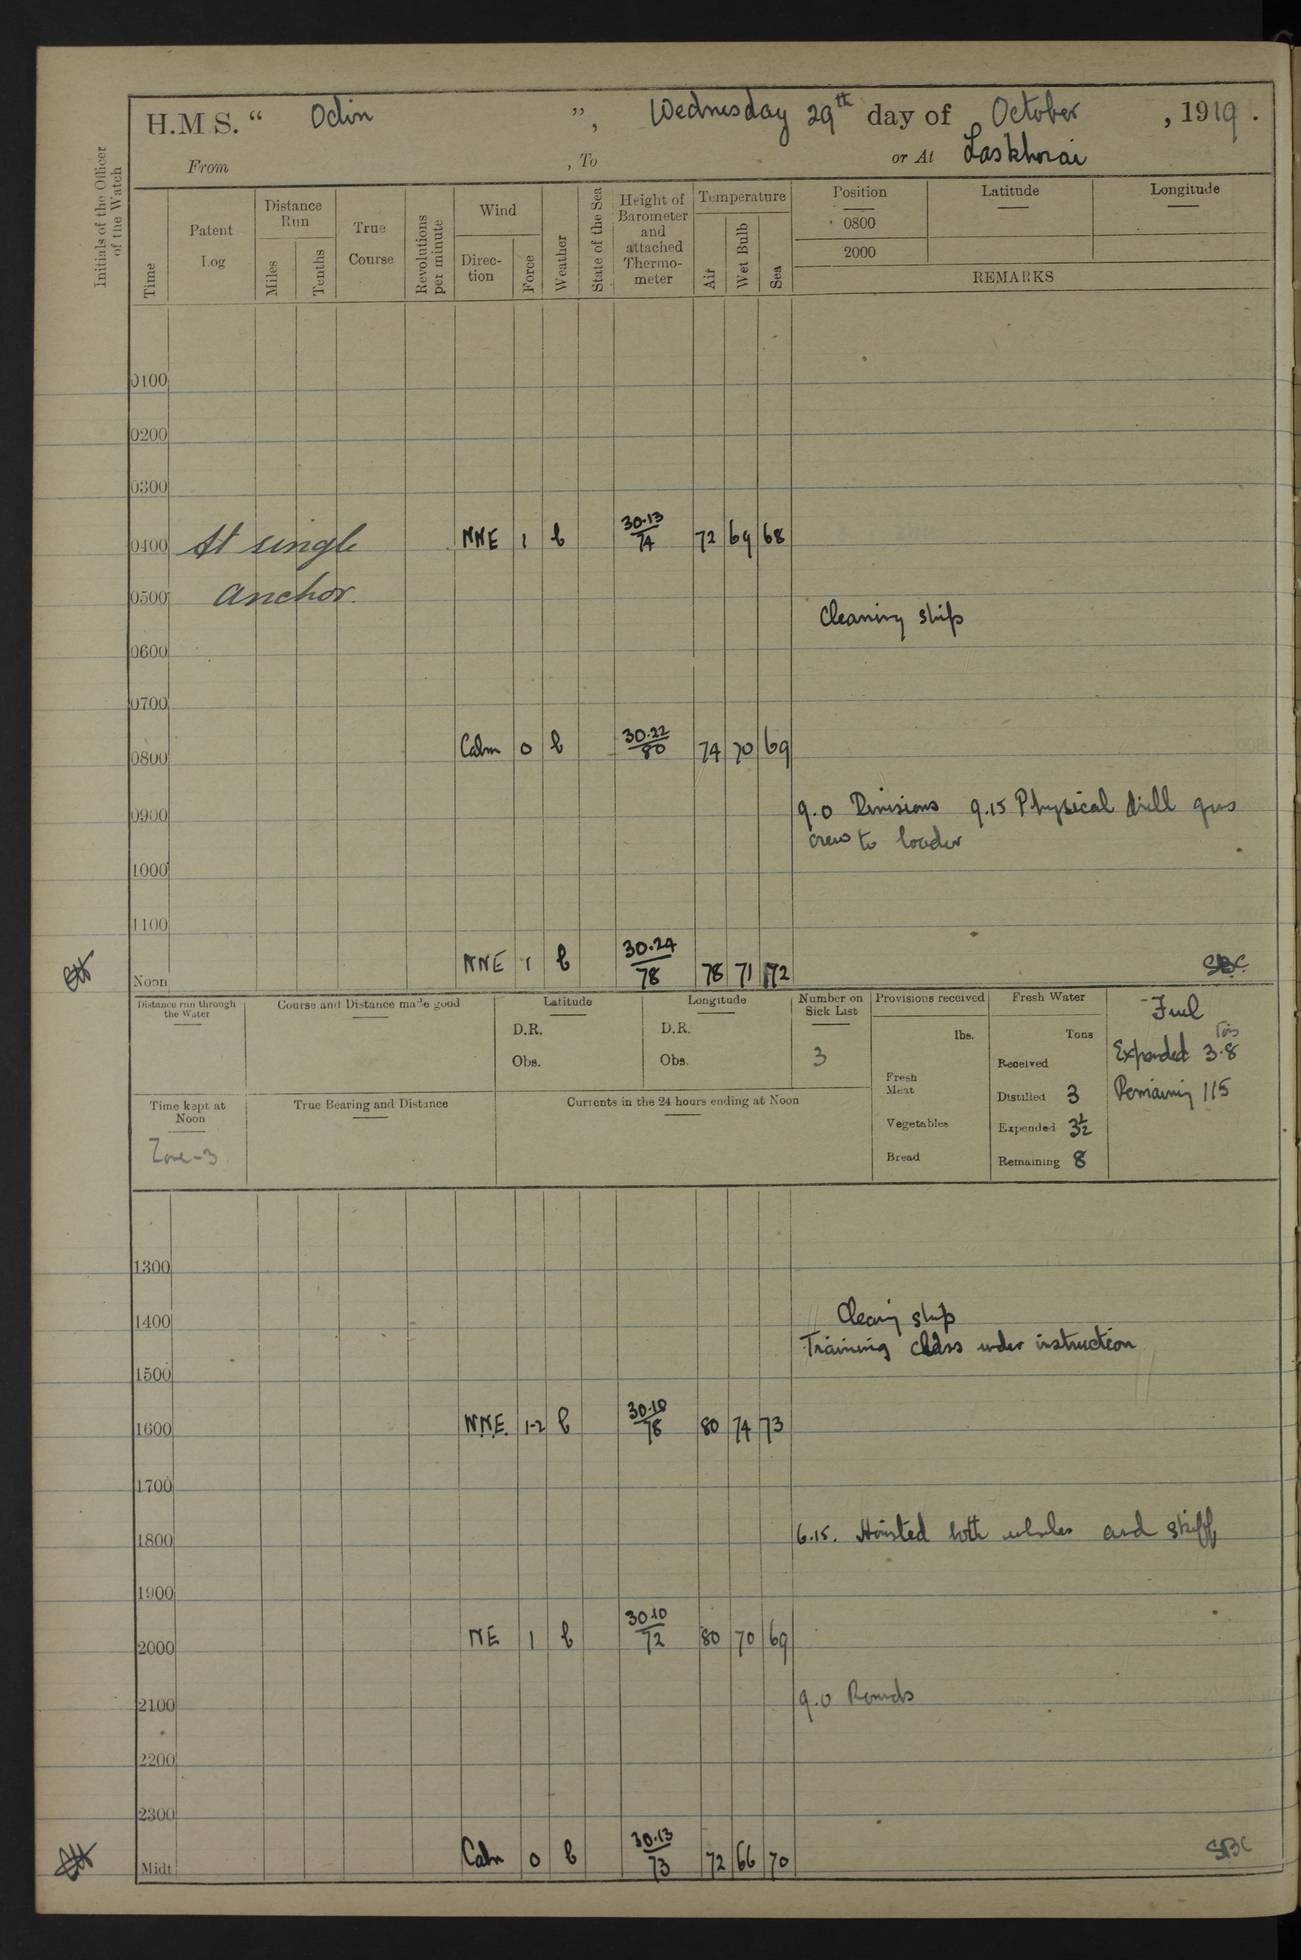 H.M.S. “ Odin ”, Wednesday 29th day of October, 1919.
From , To or At Laskhorai
Initials of the Officer of the Watch
Time
Patent Log
Distance Run
Miles
Tenths
True Course
Revolutions per minute
Wind
Direc-tion
Force
Weather
State of the Sea
Height of Barometer and attached Thermo-meter
Temperature
Air
Wet Bulb
Sea
Position Latitude Longitude
0800
2000
REMARKS
0100
0200
0300
0400 At single NNE 1 b 30.13/74 72 69 68
0500 anchor.
Cleaning ship
0600
0700
0800 Calm 0 b 30.22/80 74 70 69
0900 9.0 Divisions 9.15 Physical drill guns
crew to loader
1000
1100
Noon NNE 1 b 30.24/78 78 71 72 SBC
Distance run through the Water
Course and Distance made good
Latitude
D.R.
Obs.
Longitude
D.R.
Obs.
Number on Sick List
3
Provisions received
lbs.
Fresh Meat
Vegetables
Bread
Fresh Water
Tons
Received
Distilled 3
Expended 3½
Remaining 8
Fuel
Tons
Expended 3.8
Remaining 115
Time kept at Noon
Zone -3
True Bearing and Distance
Currents in the 24 hours ending at Noon
1300
1400 Cleaning ship
Training class under instruction
1500
1600 N.N.E. 1-2 b 30.10/78 80 74 73
1700
1800 6.15. Hoisted both whalers and skiff
1900
2000 NE 1 b 30 10/72 80 70 69
2100 9.0 Rounds
2200
2300
Midt Calm 0 b 30.13/73 72 66 70 SBC